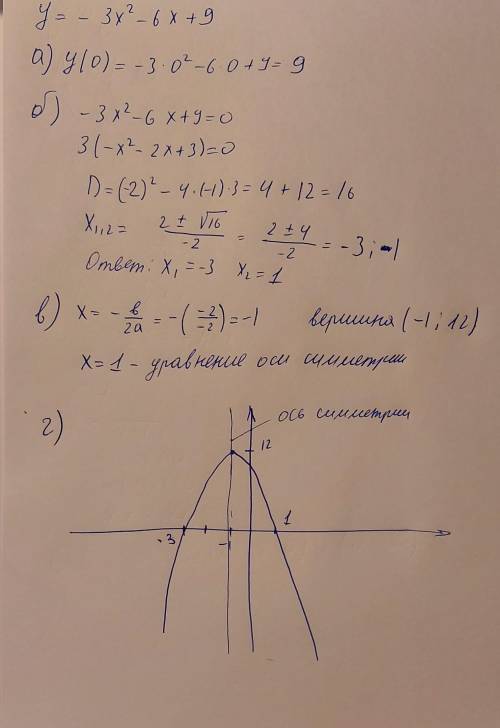 y = - 3x² - 6x + 9
а) y(0) = -3·0² - 6·0 + 9 = 9
б) -3x² - 6x + 9 = 0
3(-x² - 2x + 3) = 0
D = (-2)² - 4·(-1)·3 = 4 + 12 = 16
x₁,₂ = (2 ± √16)/(-2) = (2 ± 4)/(-2) = -3; 1
Ответ: x₁ = -3 x₂ = 1
в) x = - в/2а = -(-2/-2) = -1 вершина (-1; 12)
x = 1 - уравнение оси симметрии
г)
ось симметрии
12
-3
-1
1